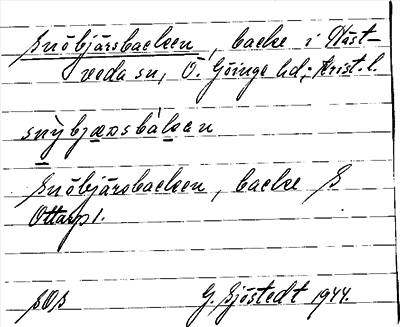 Snöbjärsbacken, backe i Häst-
veda sn, Ö. Göinge hd, Krist. l.
snỳbjæʀsbàkən
Snöbjärsbacken, backe S
Ottarp 1.
SOS G. Sjöstedt 1944.